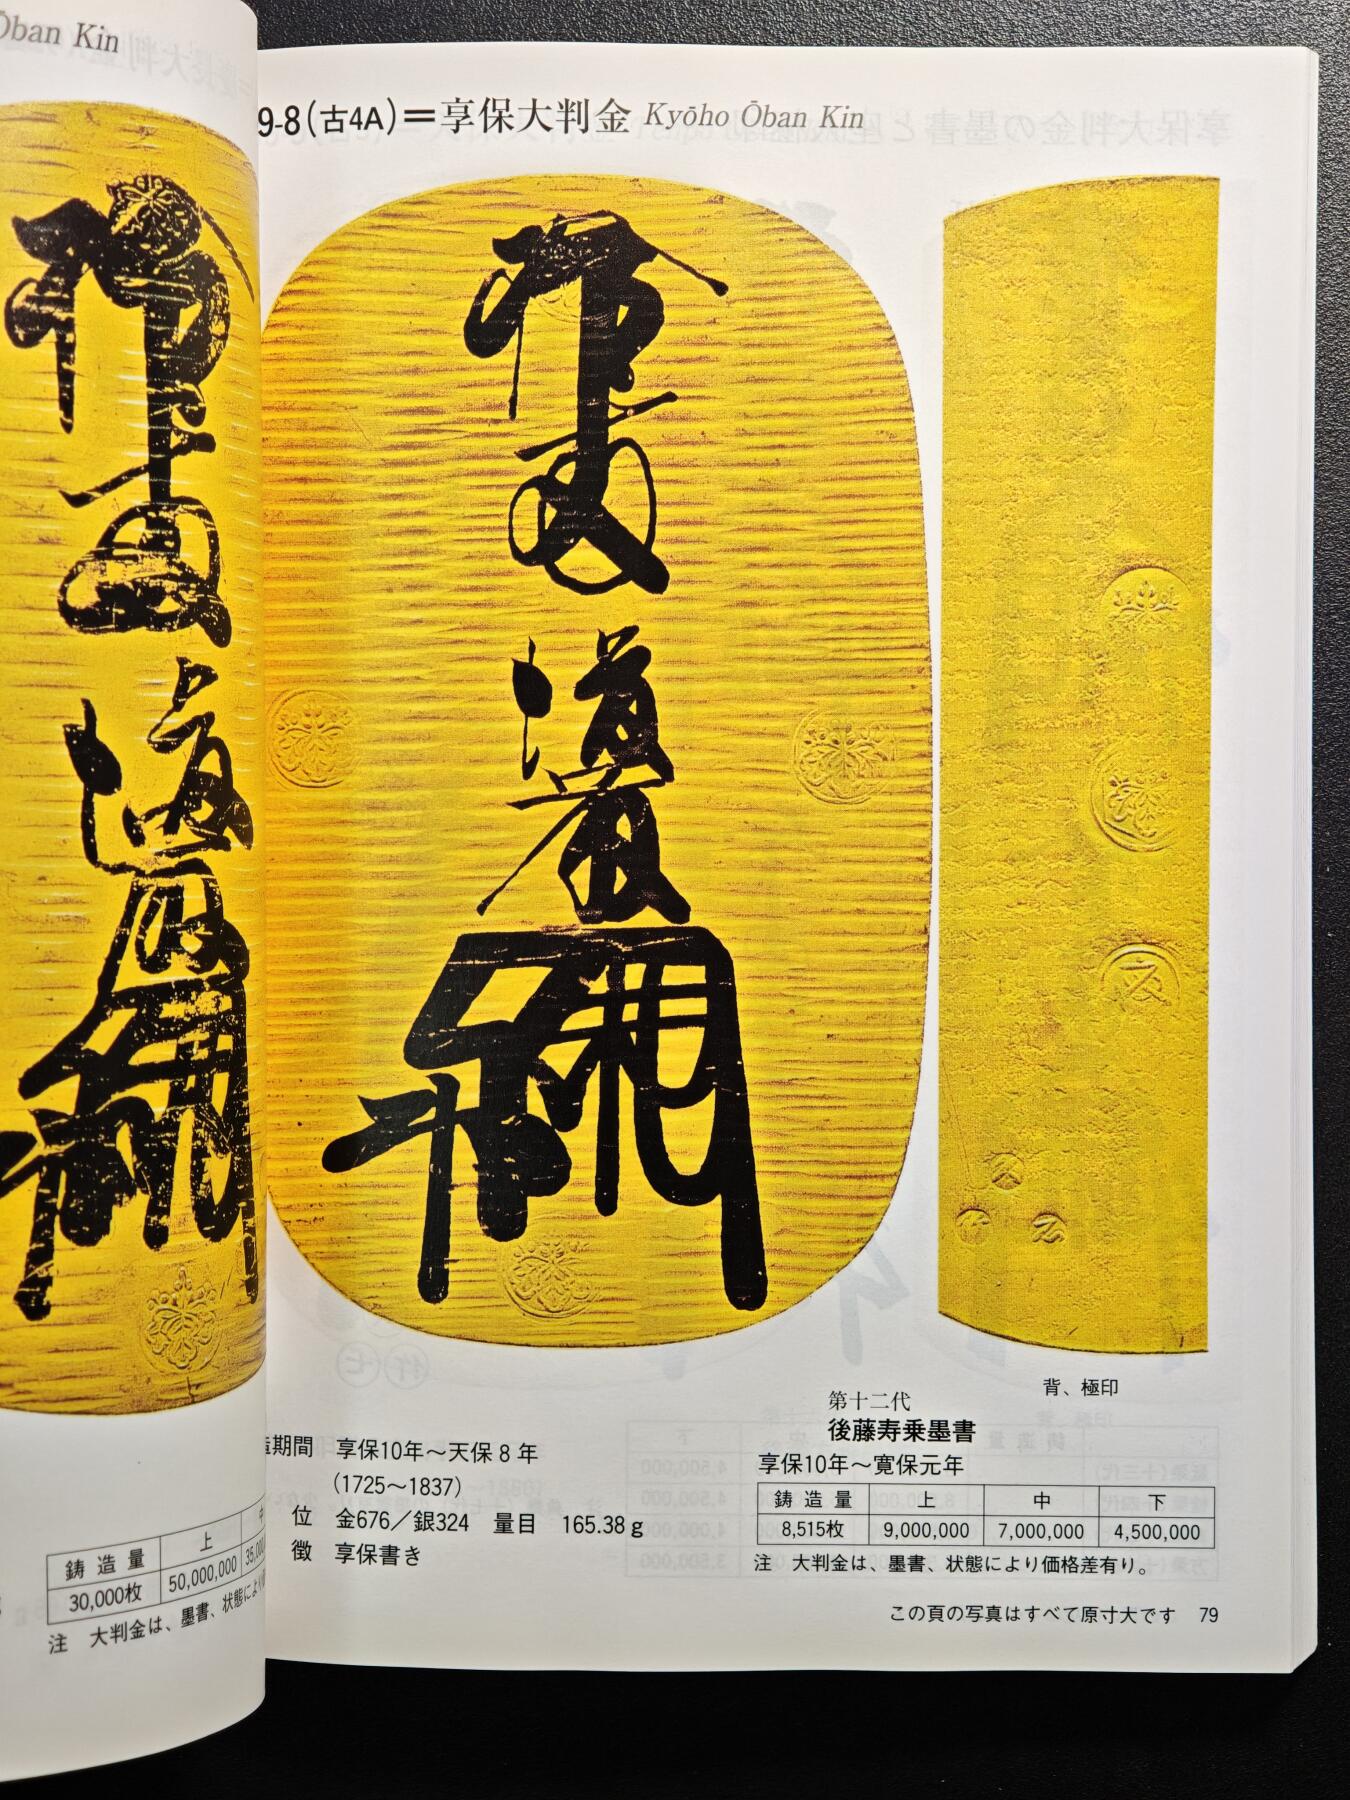 Ōban Kin
鋳造量 上 中
30,000枚 50,000,000 35,000
注 大判金は、墨書、状態によ
9-8(古4A)=享保大判金 Kyōho Ōban Kin
背、極印
期間 享保10年〜天保8年
(1725〜1837)
位 金676/銀324 量目 165.38g
徴 享保書き
第十二代
後藤寿乗墨書
享保10年〜寛保元年
鋳造量 上 中 下
8,515枚 9,000,000 7,000,000 4,500,000
注 大判金は、墨書、状態により価格差有り。
この頁の写真はすべて原寸大です 79